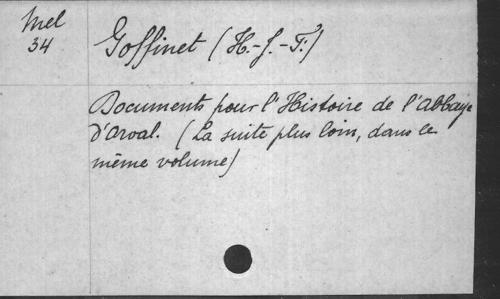 Mel
34
Goffinet (H.-J.-T.)
Documents pour l'Histoire de l'abbaye
d'Orval. (La suite plus loin, dans le
même volume)